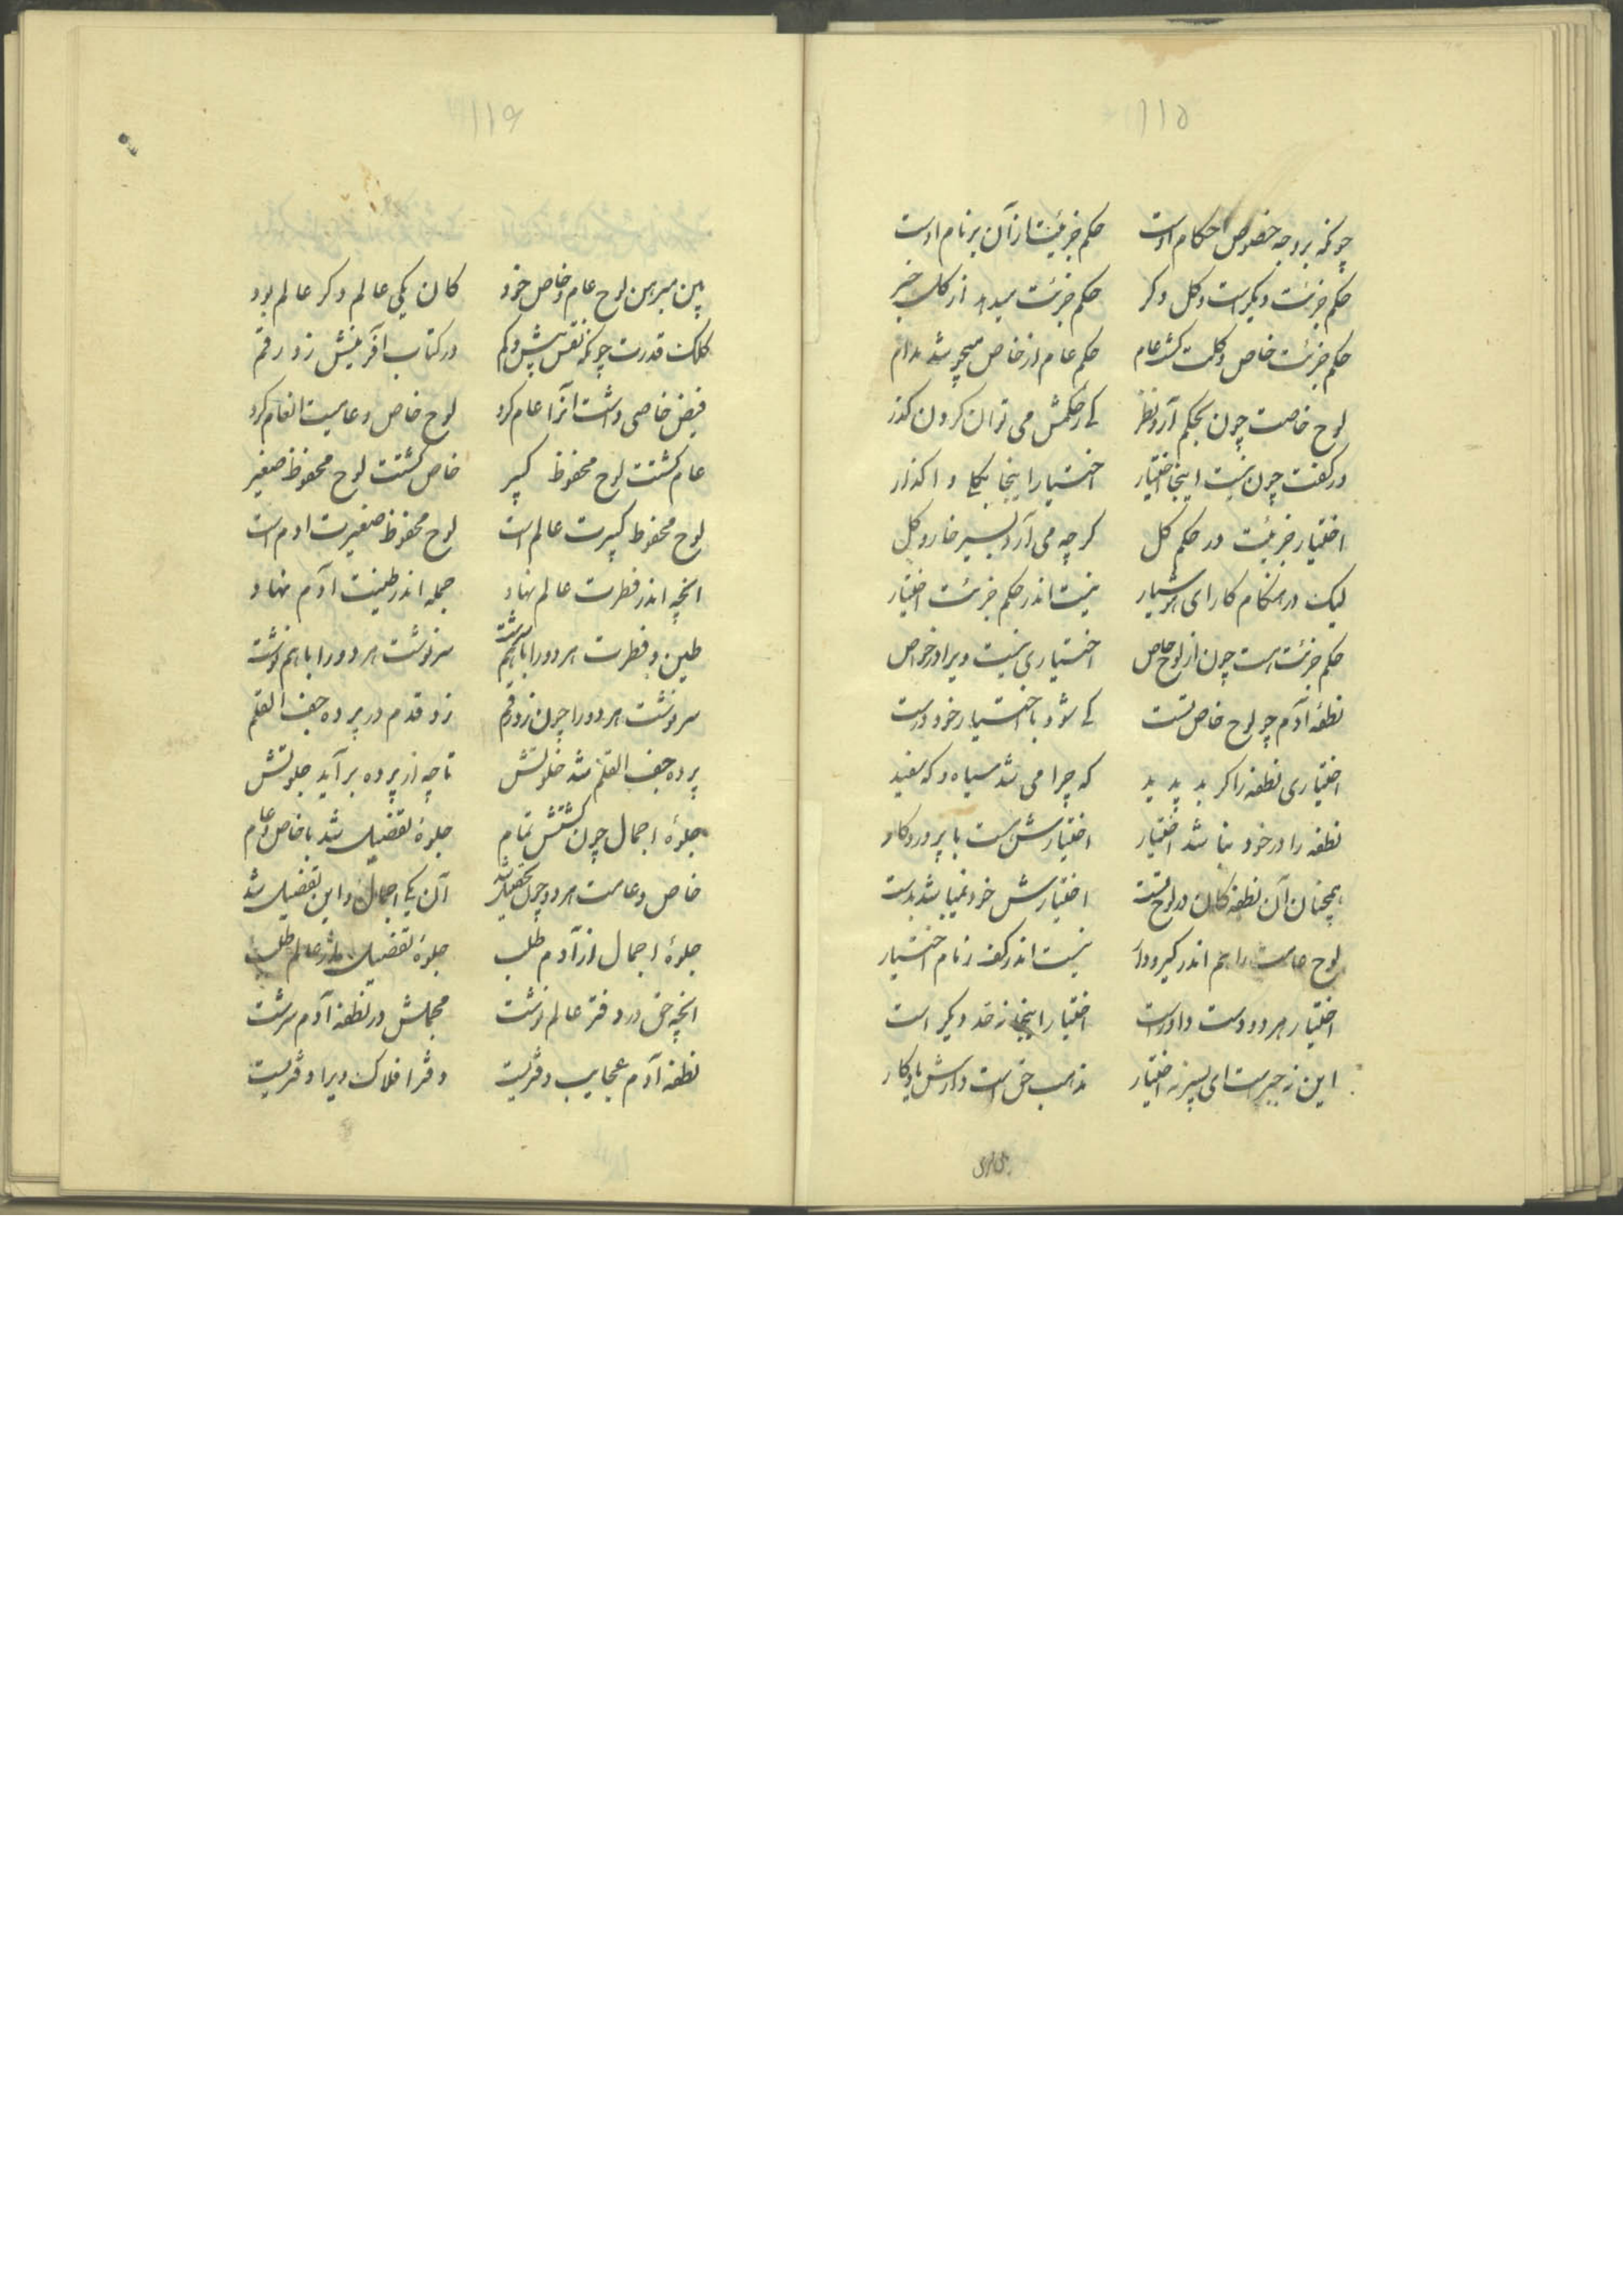 ۱۱۵
چونکه بر وجه خصوص احکام اوست حکم جزئیت از آن بر نام اوست
حکم جزئت دیگر است و کل دگر حکم جزئت میدهد از کل خبر
حکم جزئت خاص و کلت گشت عام حکم عام از خاص میجو شد مدام
لوح خاصت چون بحکم آرد نظر کی ز حکمش می توان کردن گذر
در کفت چون نیست اینجا اختیار اختیار اینجا بکلی واگذار
اختیار جزئیت در حکم کل گرچه می آرد بسیر خار و گل
لیک در هنگام کار ای هوشیار نیست اندر حکم جزئت اختیار
حکم جزئت هست چون از لوح خاص اختیاری نیست ویرا در خواص
نطفهٔ آدم چو لوح خاص تست کی شود با اختیار خود درست
اختیاری نطفه را گر بد پدید که چرا می شد سیاه و که سفید
نطفه را در خود نباشد اختیار اختیارش هست با پروردگار
همچنان آن نطفه کان در لوح تست اختیارش خود نمیباشد بدست
لوح عامت را هم اندر گیر و دار نیست اندر کف زمام اختیار
اختیار هر دو دست داور است اختیار اینجا ز حد دیگر است
این نه جبر است ای پسر نه اختیار مذهب حق است دارش یادگار
۱۱۶
پس مبرهن لوح عام و خاص خود کان یکی عالم دگر عالم بود
کلک قدرت چونکه نقش بیش و کم در کتاب آفرینش زد رقم
فیض خاصی داشت آنرا عام کرد لوح خاص و عامیت انعام کرد
عام گشتت لوح محفوظ کبیر خاص گشتت لوح محفوظ صغیر
لوح محفوظ کبیرت عالم است لوح محفوظ صغیرت ادم است
انچه اندر فطرت عالم نهاد جمله اندر طینت آدم نهاد
طین و فطرت هر دو را باهم سرشت سرنوشت هر دو را باهم نوشت
سرنوشت هر دو را چون زد رقم زد قدم در پرده جف القلم
پرده جف القلم شد خلوتش تا چه از پرده برآید جلوتش
جلوهٔ اجمال چون گشتش تمام جلوهٔ تفضیل شد با خاص و عام
خاص و عامت هر دو چون تحصیل شد آن یکی اجمال و این تفضیل شد
جلوهٔ اجمال از آدم طلب جلوهٔ تفضیل از عالم طلب
انچه حق در دفتر عالم نوشت مجملش در نطفه آدم سرشت
نطفه آدم عجایب دفتریست دفتر افلاک ویرا دفتریست